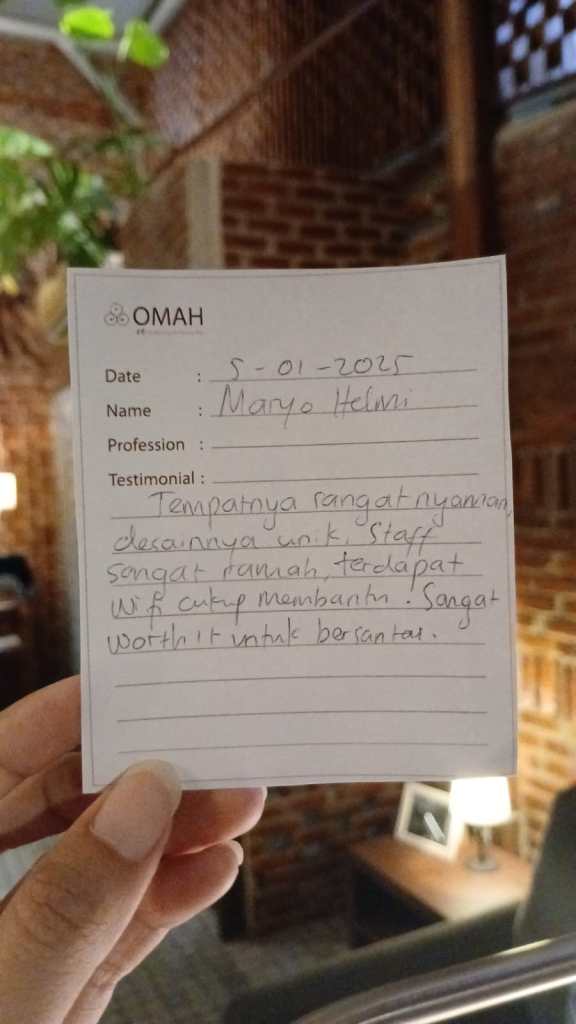 OMAH
Date : 5-01-2025
Name : Maryo Helmi
Profession :
Testimonial :
Tempatnya sangat nyaman,
desainnya unik. Staff
sangat ramah, terdapat
Wifi cukup membantu. Sangat
worth it untuk bersantai.